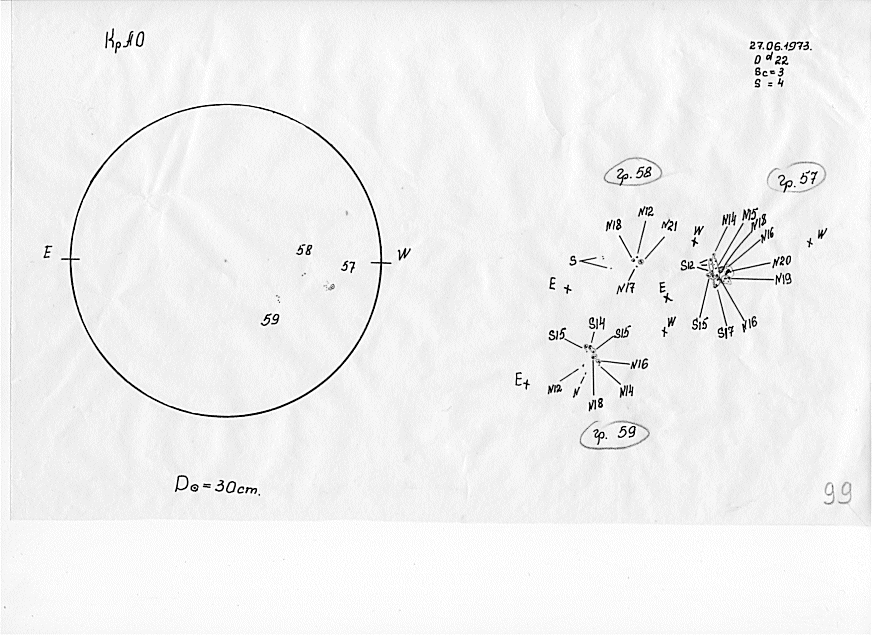 КрАО
27.06.1973.
0 d 22
Sc=3
S = 4
E
W
58
57
59
D⊙=30cm.
гр. 58
N18
N12
N21
S
N17
E
W
гр. 57
N14
N15
N18
N16
W
S12
N20
N19
E
S15
S17
N16
S15
S14
S15
W
E
N12
N
N18
N14
N16
гр. 59
99